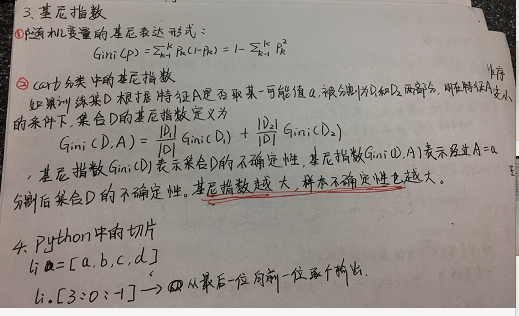 3.基尼指数
①随机变量的基尼表达形式:
Gini(p)=∑ᴷₖ₌₁ Pₖ(1-Pₖ)=1-∑ᴷₖ₌₁ Pₖ²
② cart分类中的基尼指数
如果训练集D根据特征A是否取某一可能值a,被分割为D₁和D₂两部分,则在特征A
的条件下,集合D的基尼指数定义为
Gini(D,A)=|D₁|/|D| Gini(D₁)+|D₂|/|D| Gini(D₂)
,基尼指数Gini(D)表示集合D的不确定性,基尼指数Gini(D,A)表示经过A=a
分割后集合D的不确定性。基尼指数越大,样本不确定性也越大。
4. Python中的切片
li=[a,b,c,d]
li.[3:0:-1]→从最后一位向前一位逐个输出.